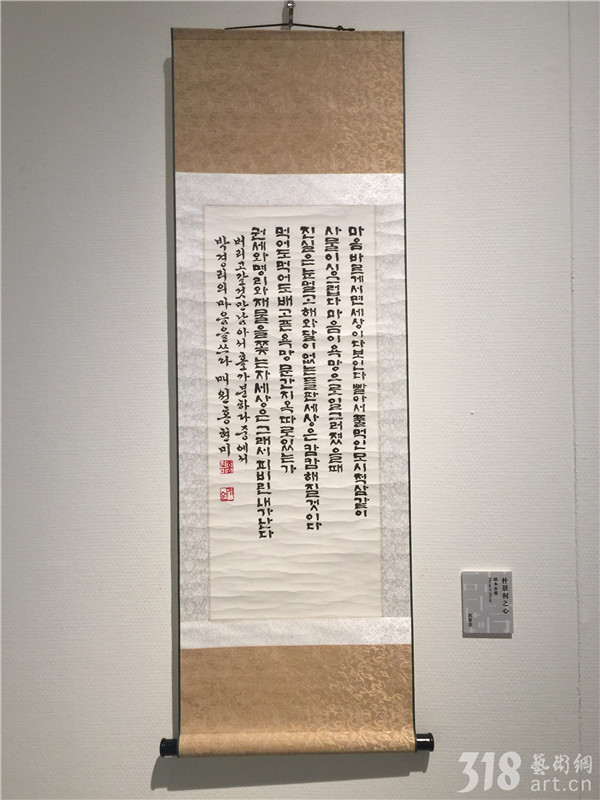 마음 바르게 서면 세상이 다 보인다 빨아서 풀먹인 모시 적삼같이
사물이 싱그럽다 마음이 욕망으로 일그러졌을 때
진실은 눈멀고 해와 달이 없는 들판 세상은 캄캄해질 것이다
먹어도 먹어도 배고픈 욕망 문간지옥 따로 있는가
권세와 명리와 재물을 쫓는 자 세상은 그래서 피비린내가 난다
버리고 갈 것만 남아서 홀가분하다 중에서
박경리의 마음을 쓰다 홍현미
朴景利之心
318藝術網
art.cn